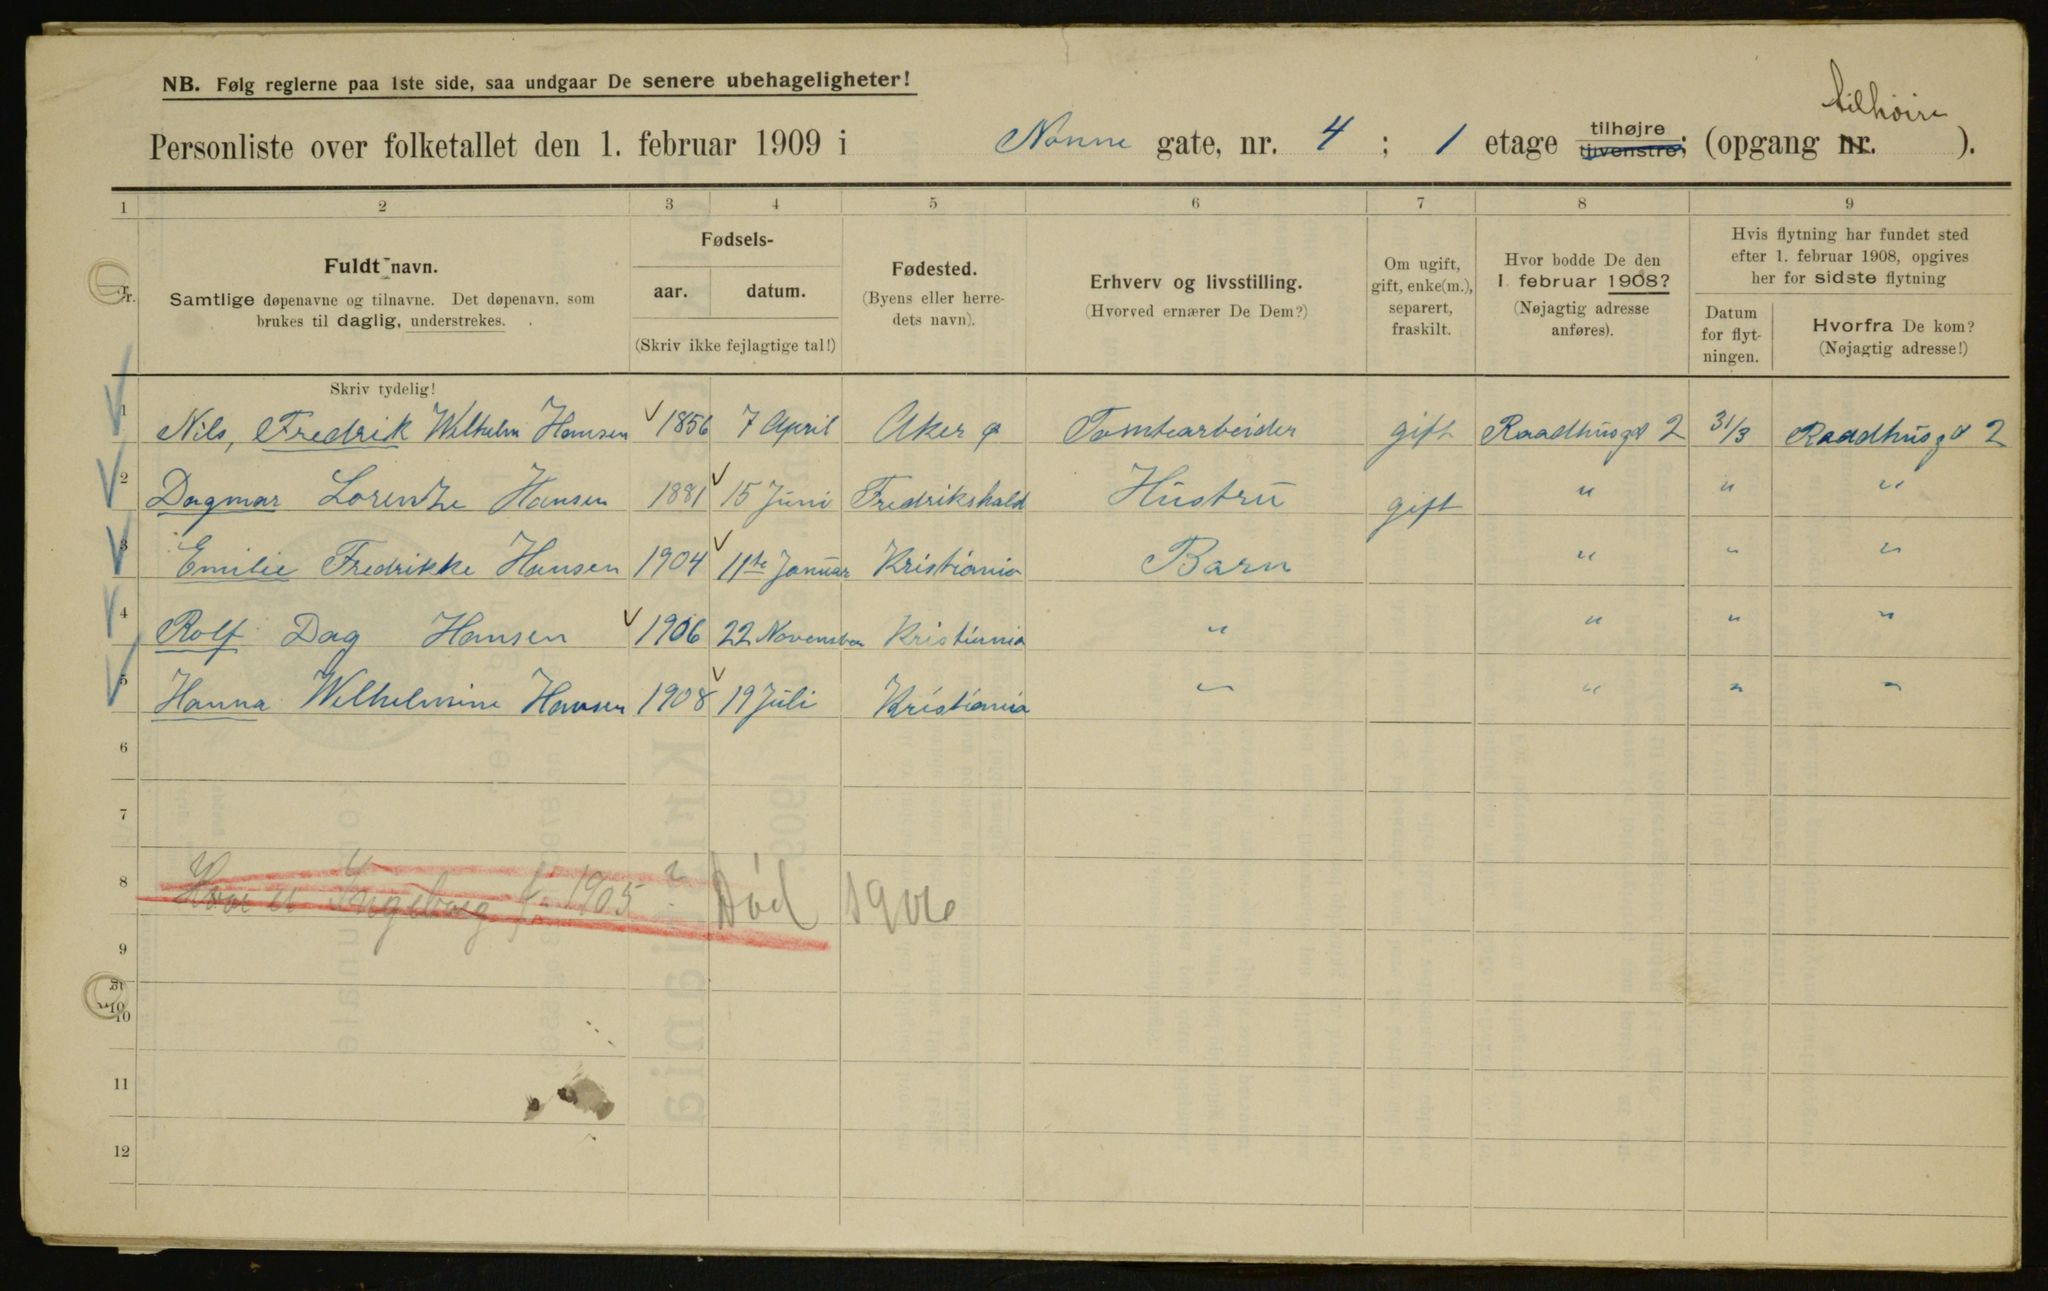 NB. Følg reglerne paa 1ste side, saa undgaar De senere ubehageligheter!
tilhøire
Personliste over folketallet den 1. februar 1909 i Nonne gate, nr. 4 ; 1 etage tilhøjre tilvenstre; (opgang nr. ).
1 2 3 4 5 6 7 8 9
Nr.
Fuldt navn.
Samtlige døpenavne og tilnavne. Det døpenavn, som
brukes til daglig, understrekes.
Fødsels-
aar. datum.
(Skriv ikke fejlagtige tal!)
Fødested.
(Byens eller herre-
dets navn).
Erhverv og livsstilling.
(Hvorved ernærer De Dem?)
Om ugift,
gift, enke(m.),
separert,
fraskilt.
Hvor bodde De den
1. februar 1908?
(Nøjagtig adresse
anføres).
Hvis flytning har fundet sted
efter 1. februar 1908, opgives
her for sidste flytning
Datum
for flyt-
ningen.
Hvorfra De kom?
(Nøjagtig adresse!)
Skriv tydelig!
1 Nils, Fredrik Wilhelm Hansen 1856 7 April Aker Tomtearbeider gift Raadhusgt 2 31/3 Raadhusgt 2
2 Dagmar Lorentze Hansen 1881 15 Juni Fredrikshald Hustru gift " " "
3 Emilie Fredrikke Hansen 1904 11te Januar Kristiania Barn " " "
4 Rolf Dag Hansen 1906 22 November Kristiania " " " "
5 Hanna Wilhelmine Hansen 1908 19 Juli Kristiania " " " "
6
7
8 Hvor er Ingeborg f. 1905? Død 1906
9
10
11
12